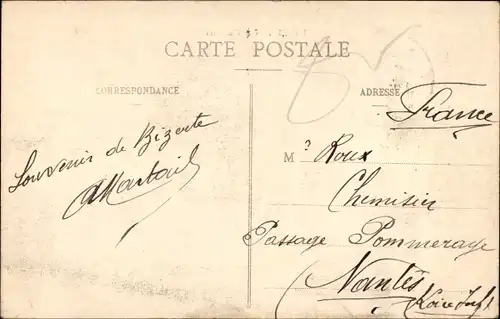 CARTE POSTALE
CORRESPONDANCE
ADRESSE
France
Souvenir de Bizerte
M? Roux
Chemisier
Passage Pommeraye
Nantes
(Loire Inf)